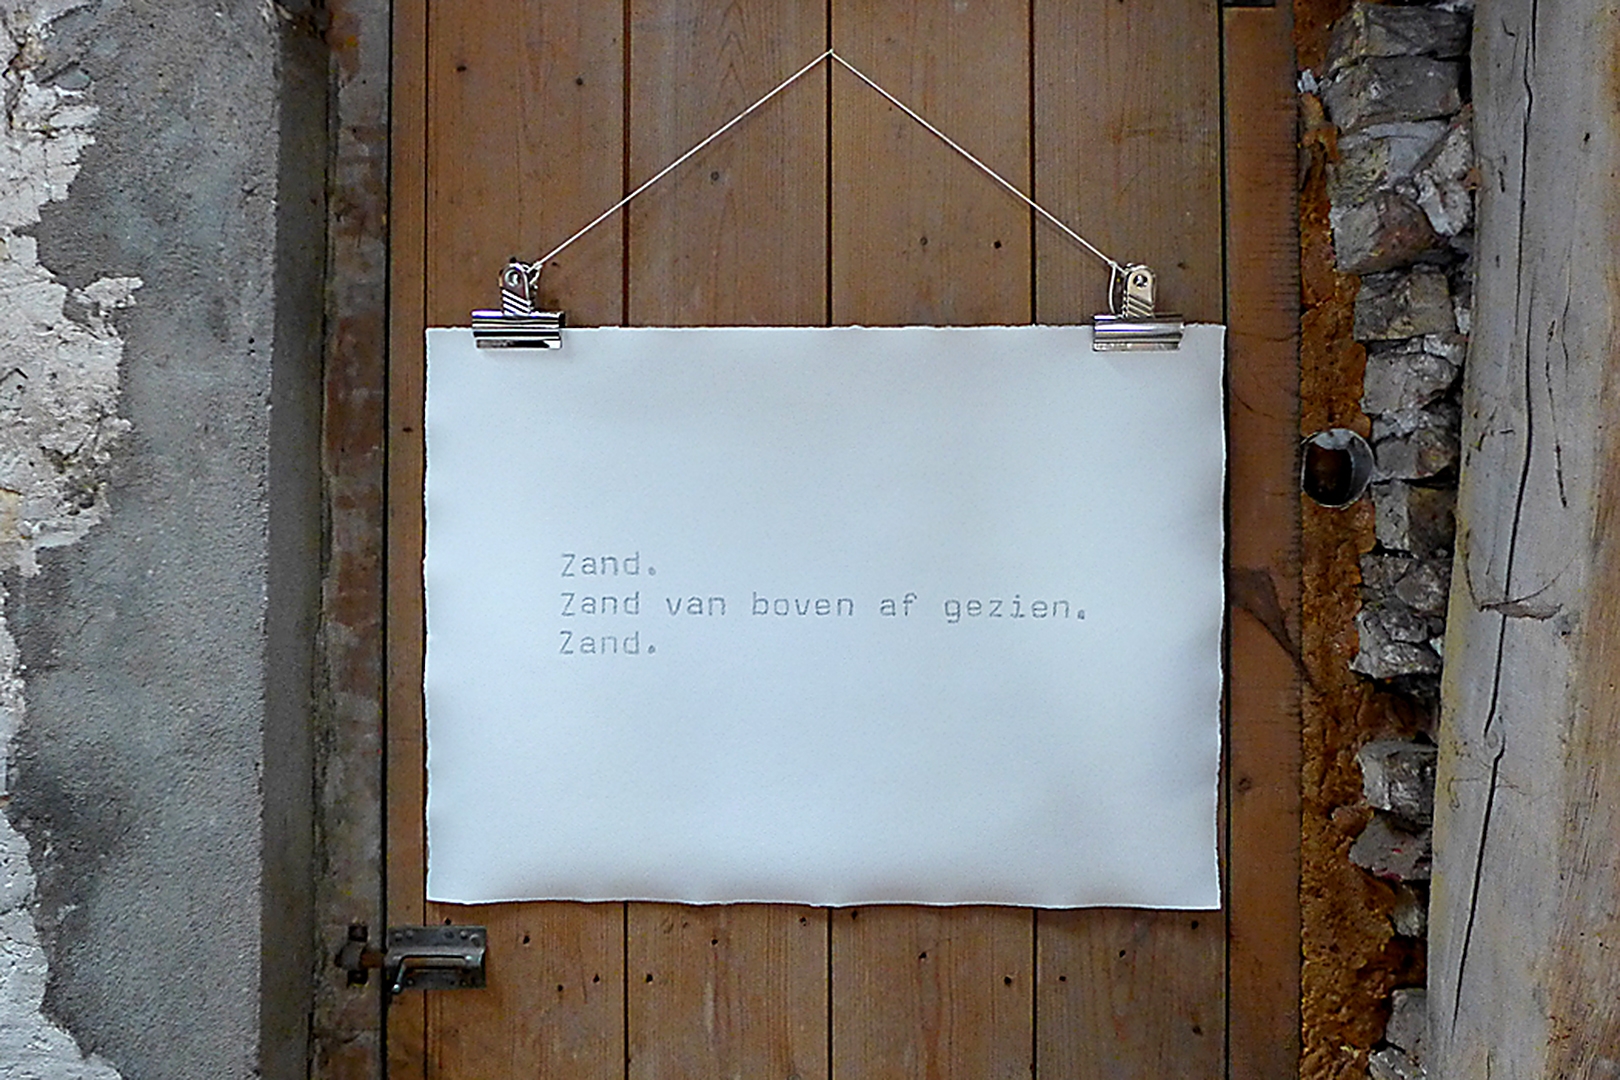 Zand.
Zand van boven af gezien.
Zand.